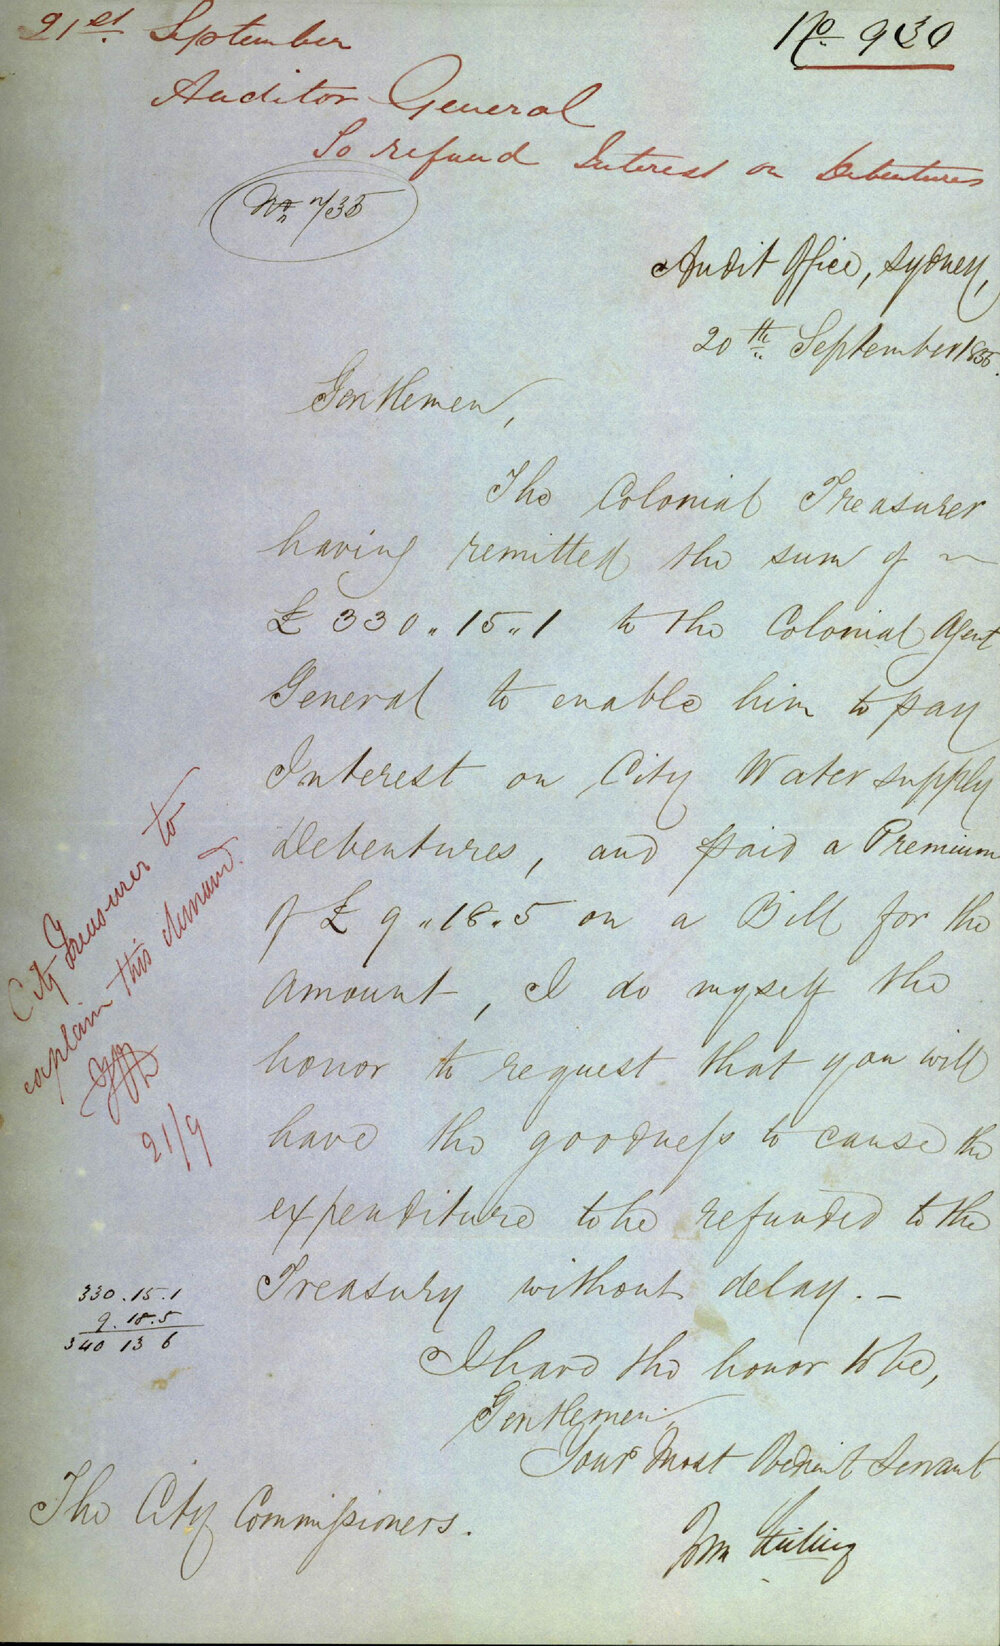 21st September
No 930
Auditor General
To refund Interest on Debentures
Audit Office, Sydney,
20th September 1855.
Gentlemen,
The Colonial Treasurer
having remitted the sum of ~
£330.15.1 to the Colonial Agent
General to enable him to pay
Interest on City Water supply
Debentures, and paid a Premium
of £9.18.5 on a Bill for the
Amount, I do myself the
honor to request that you will
have the goodness to cause the
expenditure to be refunded to the
Treasury without delay. –
I have the honor to be,
Gentlemen,
Your Most Obedient Servant
The City Commissioners.
City Treasurer to
explain this demand.
21/9
330.15.1
9.18.5
340 13 6